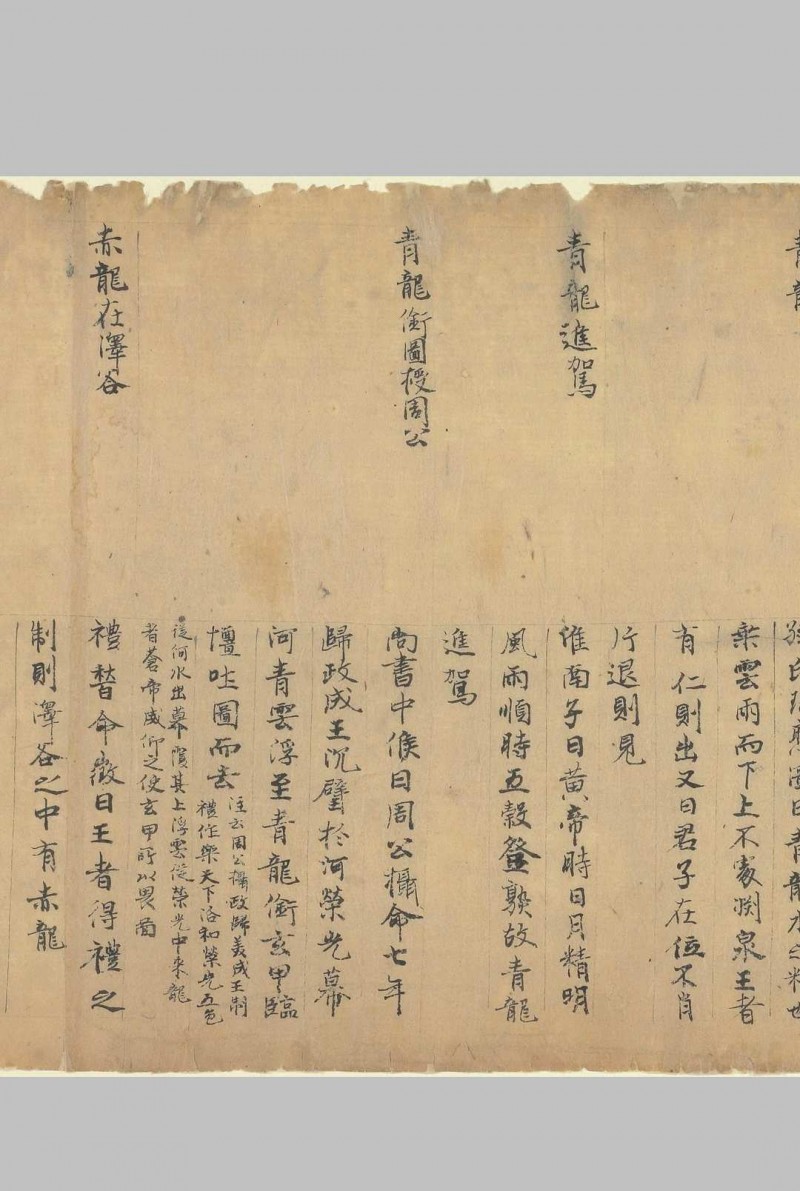 青龍
孫氏瑞應圖曰青龍水之精也
乘雲雨而下上不處渕泉王者
有仁則出又曰君子在位不肖
斥退則見
青龍進駕
淮南子曰黃帝時日月精明
風雨順時五穀登熟故青龍
進駕
青龍銜圖授周公
尚書中候曰周公攝命七年
歸政成王沉璧於河榮光幕
河青雲浮至青龍銜玄甲臨
壇吐圖而去
注云周公攝政歸美成王制
禮作樂天下洛和榮光五色
從河水出幕覆其上浮雲從榮光中來龍
者蒼帝威仰之使玄甲所以畏啚
赤龍在澤谷
禮替命徵曰王者得禮之
制則澤谷之中有赤龍